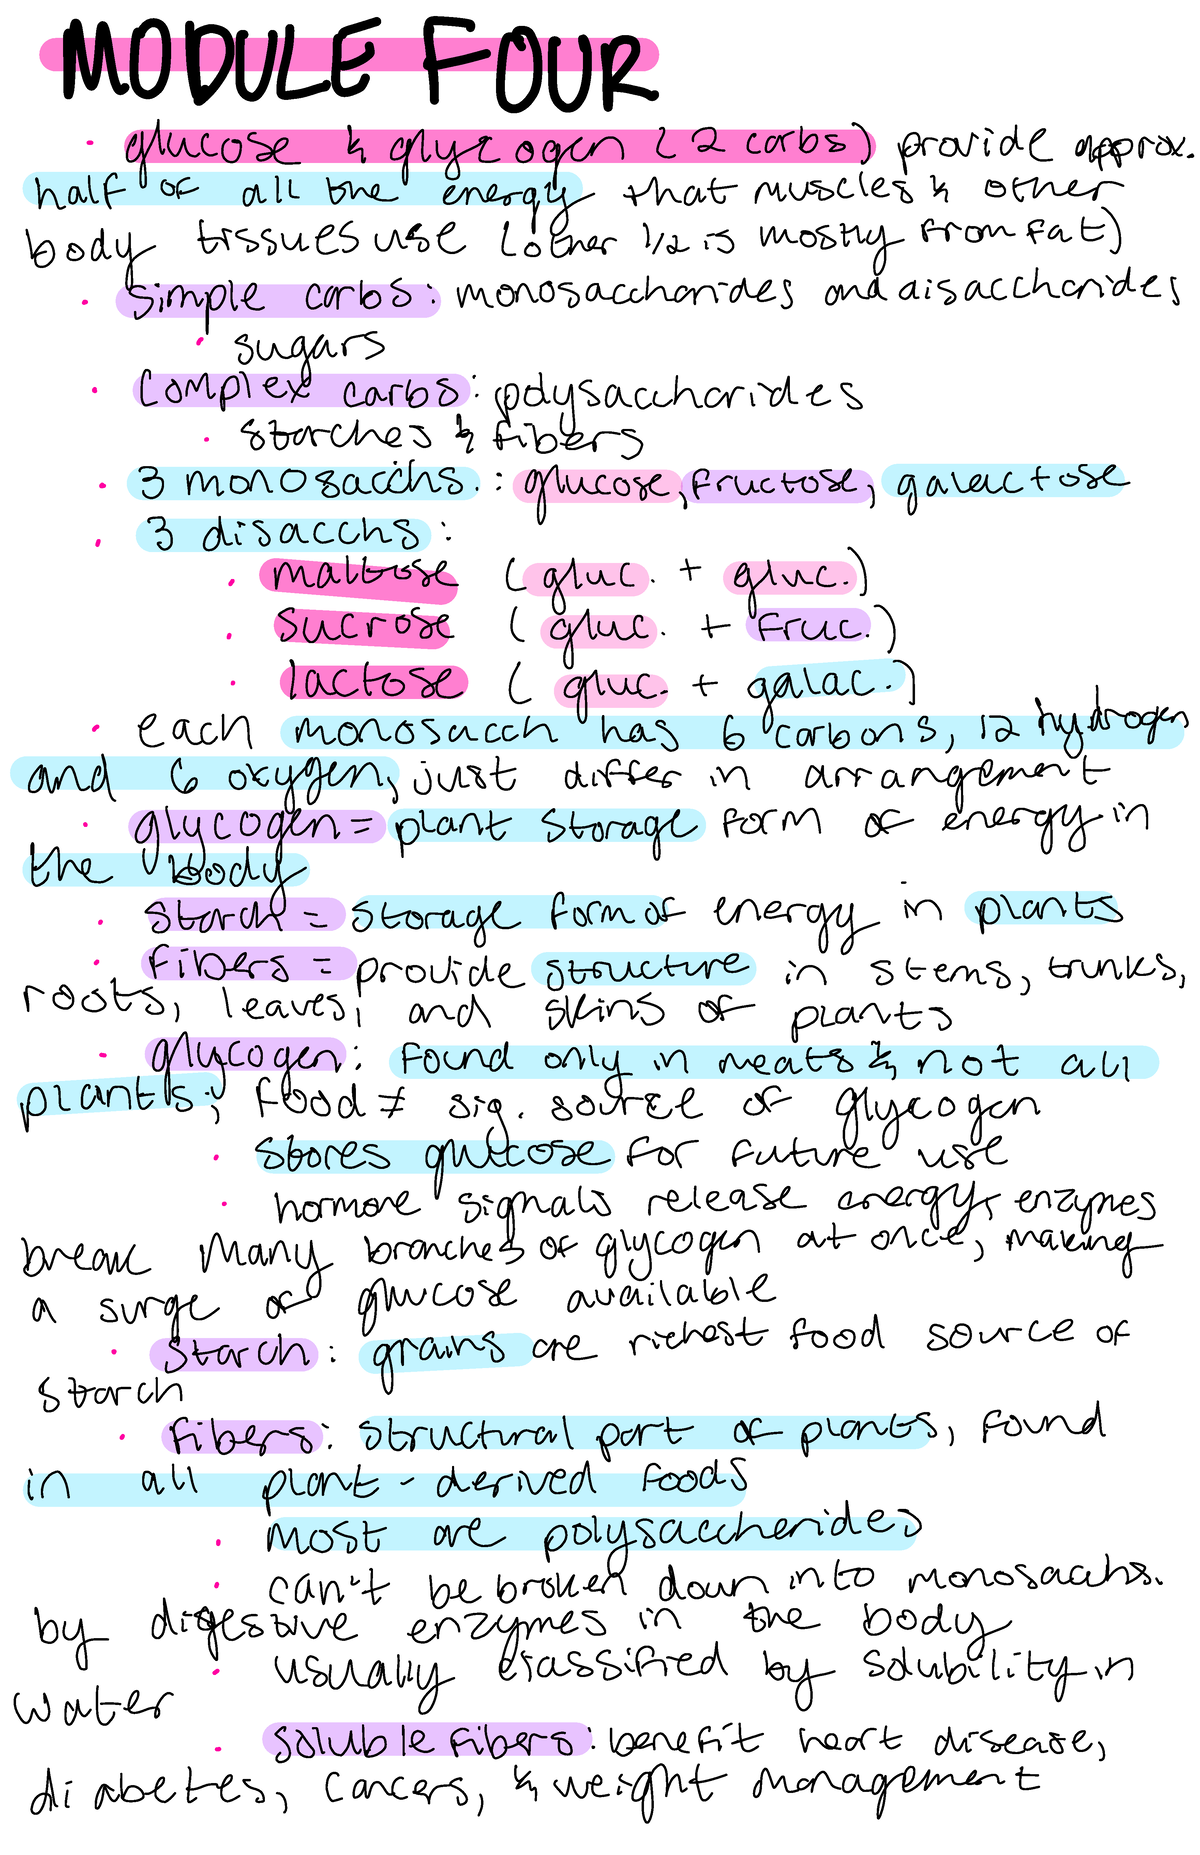 MODULE FOUR
· glucose & glycogen (2 carbs) provide approx.
half of all the energy that muscles & other
body tissues use (other 1/2 is mostly from fat)
· simple carbs: monosaccharides and disaccharides
· sugars
· complex carbs: polysaccharides
· starches & fibers
· 3 monosacchs.: glucose, fructose, galactose
· 3 disacchs:
· maltose (gluc. + gluc.)
· sucrose (gluc. + fruc.)
· lactose (gluc. + galac.)
· each monosacch has 6 carbons, 12 hydrogen
and 6 oxygen, just differ in arrangement
· glycogen = plant storage form of energy in
the body
· starch = storage form of energy in plants
· fibers = provide structure in stems, trunks,
roots, leaves, and skins of plants
· glycogen: found only in meats & not all
plants; food ≠ sig. source of glycogen
· stores glucose for future use
· hormone signals release energy, enzymes
break many branches of glycogen at once, making
a surge of glucose available
· starch: grains are richest food source of
starch
· fibers: structural part of plants, found
in all plant-derived foods
· most are polysaccherides
· can't be broken down into monosacchs.
by digestive enzymes in the body
· usually classified by solubility in
water
· soluble fibers: benefit heart disease,
diabetes, cancers, & weight management